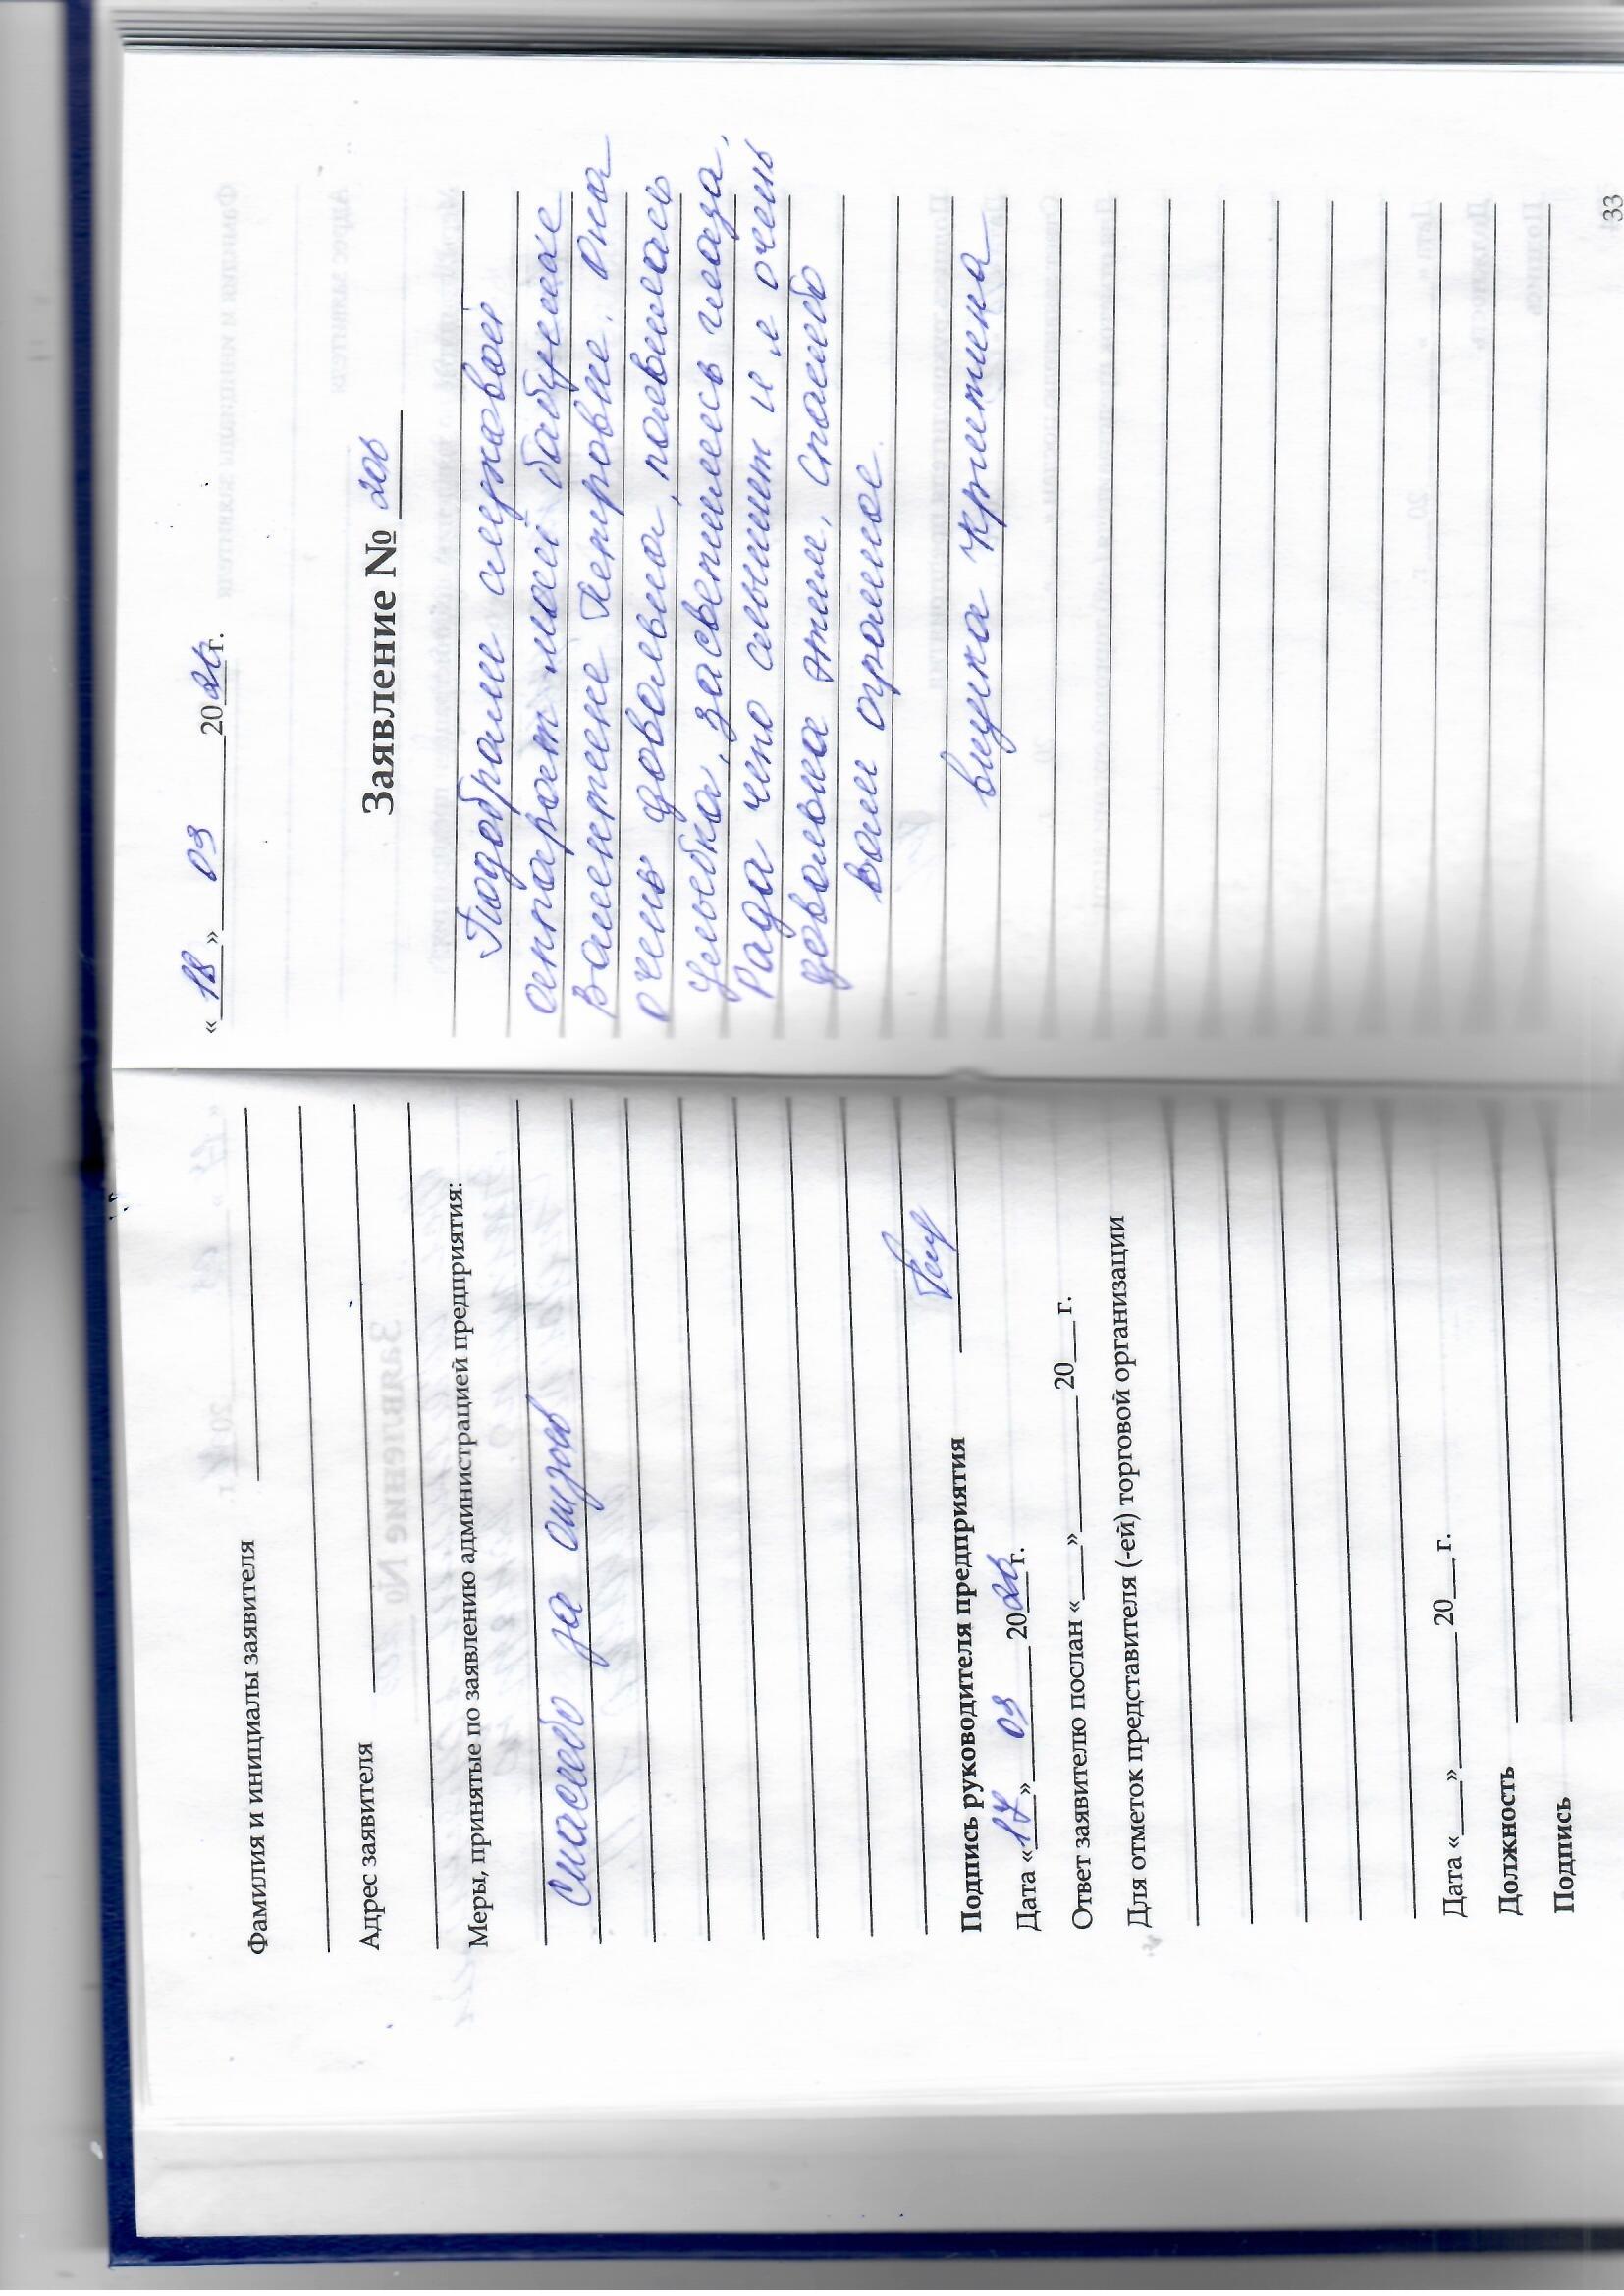 Фамилия и инициалы заявителя
Адрес заявителя
Меры, принятые по заявлению администрацией предприятия:
Спасибо за отзыв
Подпись руководителя предприятия
Дата «17» 03 20 г.
Ответ заявителю послан «___»________ 20___г.
Для отметок представителя (-ей) торговой организации
Дата «___»________ 20___г.
Должность
Подпись
«18» 03 20 г.
Заявление №
Подобрали слуховой
аппарат моей бабушке
Валентене Петровне. Она
очень довольна, появилась
улыбка, засветились глаза.
Рада что слышит и я очень
довольна этим. Спасибо
вам огромное.
внучка Кристина
33